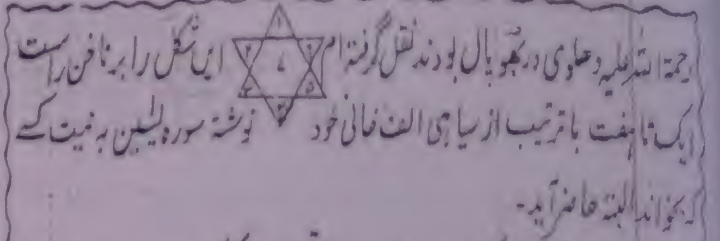 رحمۃ اللہ علیہ دھلوی در بھوپال بودند نقل گرفتہ ام ایں شکل را بر ناخن راست
۱ ۷
ایک تا ہفت با ترتیب از سیاہی الف خانی خود نوشتہ سورہ یٰسین بہ نیت کسے
کہ بخواند البتہ حاضر آید۔